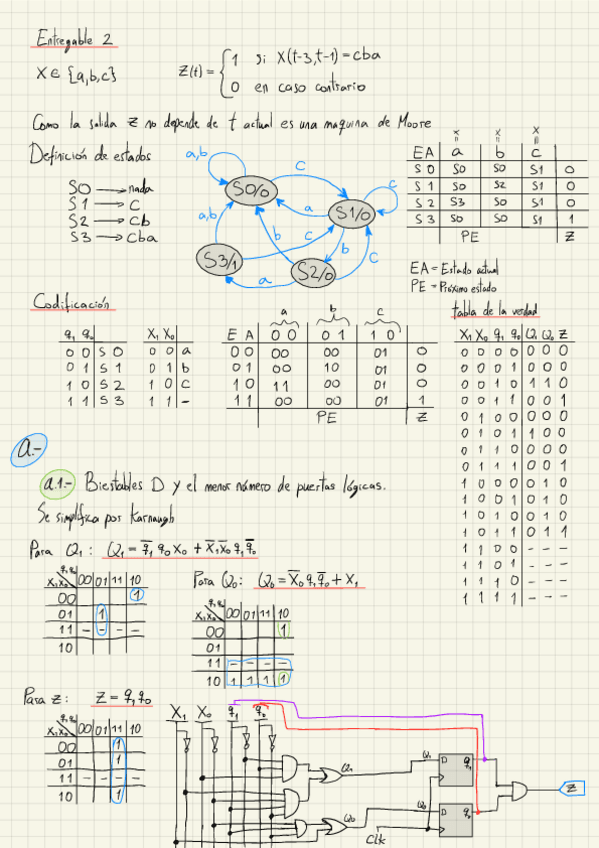 Entregable 2
X ∈ {a,b,c}
Z(t) = { 1 si X(t-3,t-1) = cba
0 en caso contrario
Como la salida Z no depende de t actual es una maquina de Moore
Definición de estados
S0 → nada
S1 → C
S2 → Cb
S3 → Cba
a,b
S0/0
C
S1/0
C
a
a,b
b
C
b
C
S3/1
a
S2/0
X= X= X=
EA a b c
S0 S0 S0 S1 0
S1 S0 S2 S1 0
S2 S3 S0 S1 0
S3 S0 S0 S1 1
PE Z
EA = Estado actual
PE = Próximo estado
Codificación
q1 q0
0 0 S0
0 1 S1
1 0 S2
1 1 S3
X1 X0
0 0 a
0 1 b
1 0 c
1 1 -
a b c
EA 00 01 10
00 00 00 01 0
01 00 10 01 0
10 11 00 01 0
11 00 00 01 1
PE Z
tabla de la verdad
X1 X0 q1 q0 Q1 Q0 Z
0 0 0 0 0 0 0
0 0 0 1 0 0 0
0 0 1 0 1 1 0
0 0 1 1 0 0 1
0 1 0 0 0 0 0
0 1 0 1 1 0 0
0 1 1 0 0 0 0
0 1 1 1 0 0 1
1 0 0 0 0 1 0
1 0 0 1 0 1 0
1 0 1 0 0 1 0
1 0 1 1 0 1 1
1 1 0 0 - - -
1 1 0 1 - - -
1 1 1 0 - - -
1 1 1 1 - - -
a.-
a.1.- Biestables D y el menor número de puertas lógicas.
Se simplifica por Karnaugh
Para Q1: Q1 = q̅1 q0 X0 + X̅1 X̅0 q1 q̅0
q1 q0
X1X0 00 01 11 10
00 1
01 1
11 - - - -
10
Para Q0: Q0 = X̅0 q1 q̅0 + X1
q1 q0
X1X0 00 01 11 10
00 1
01
11 - - - -
10 1 1 1 1
Para Z: Z = q1 q0
q1 q0
X1X0 00 01 11 10
00 1
01 1
11 - - - -
10 1
X1 X0 q1 q0
Q1
Q0
Q1
D q1
Q0
D q0
Clk
Z